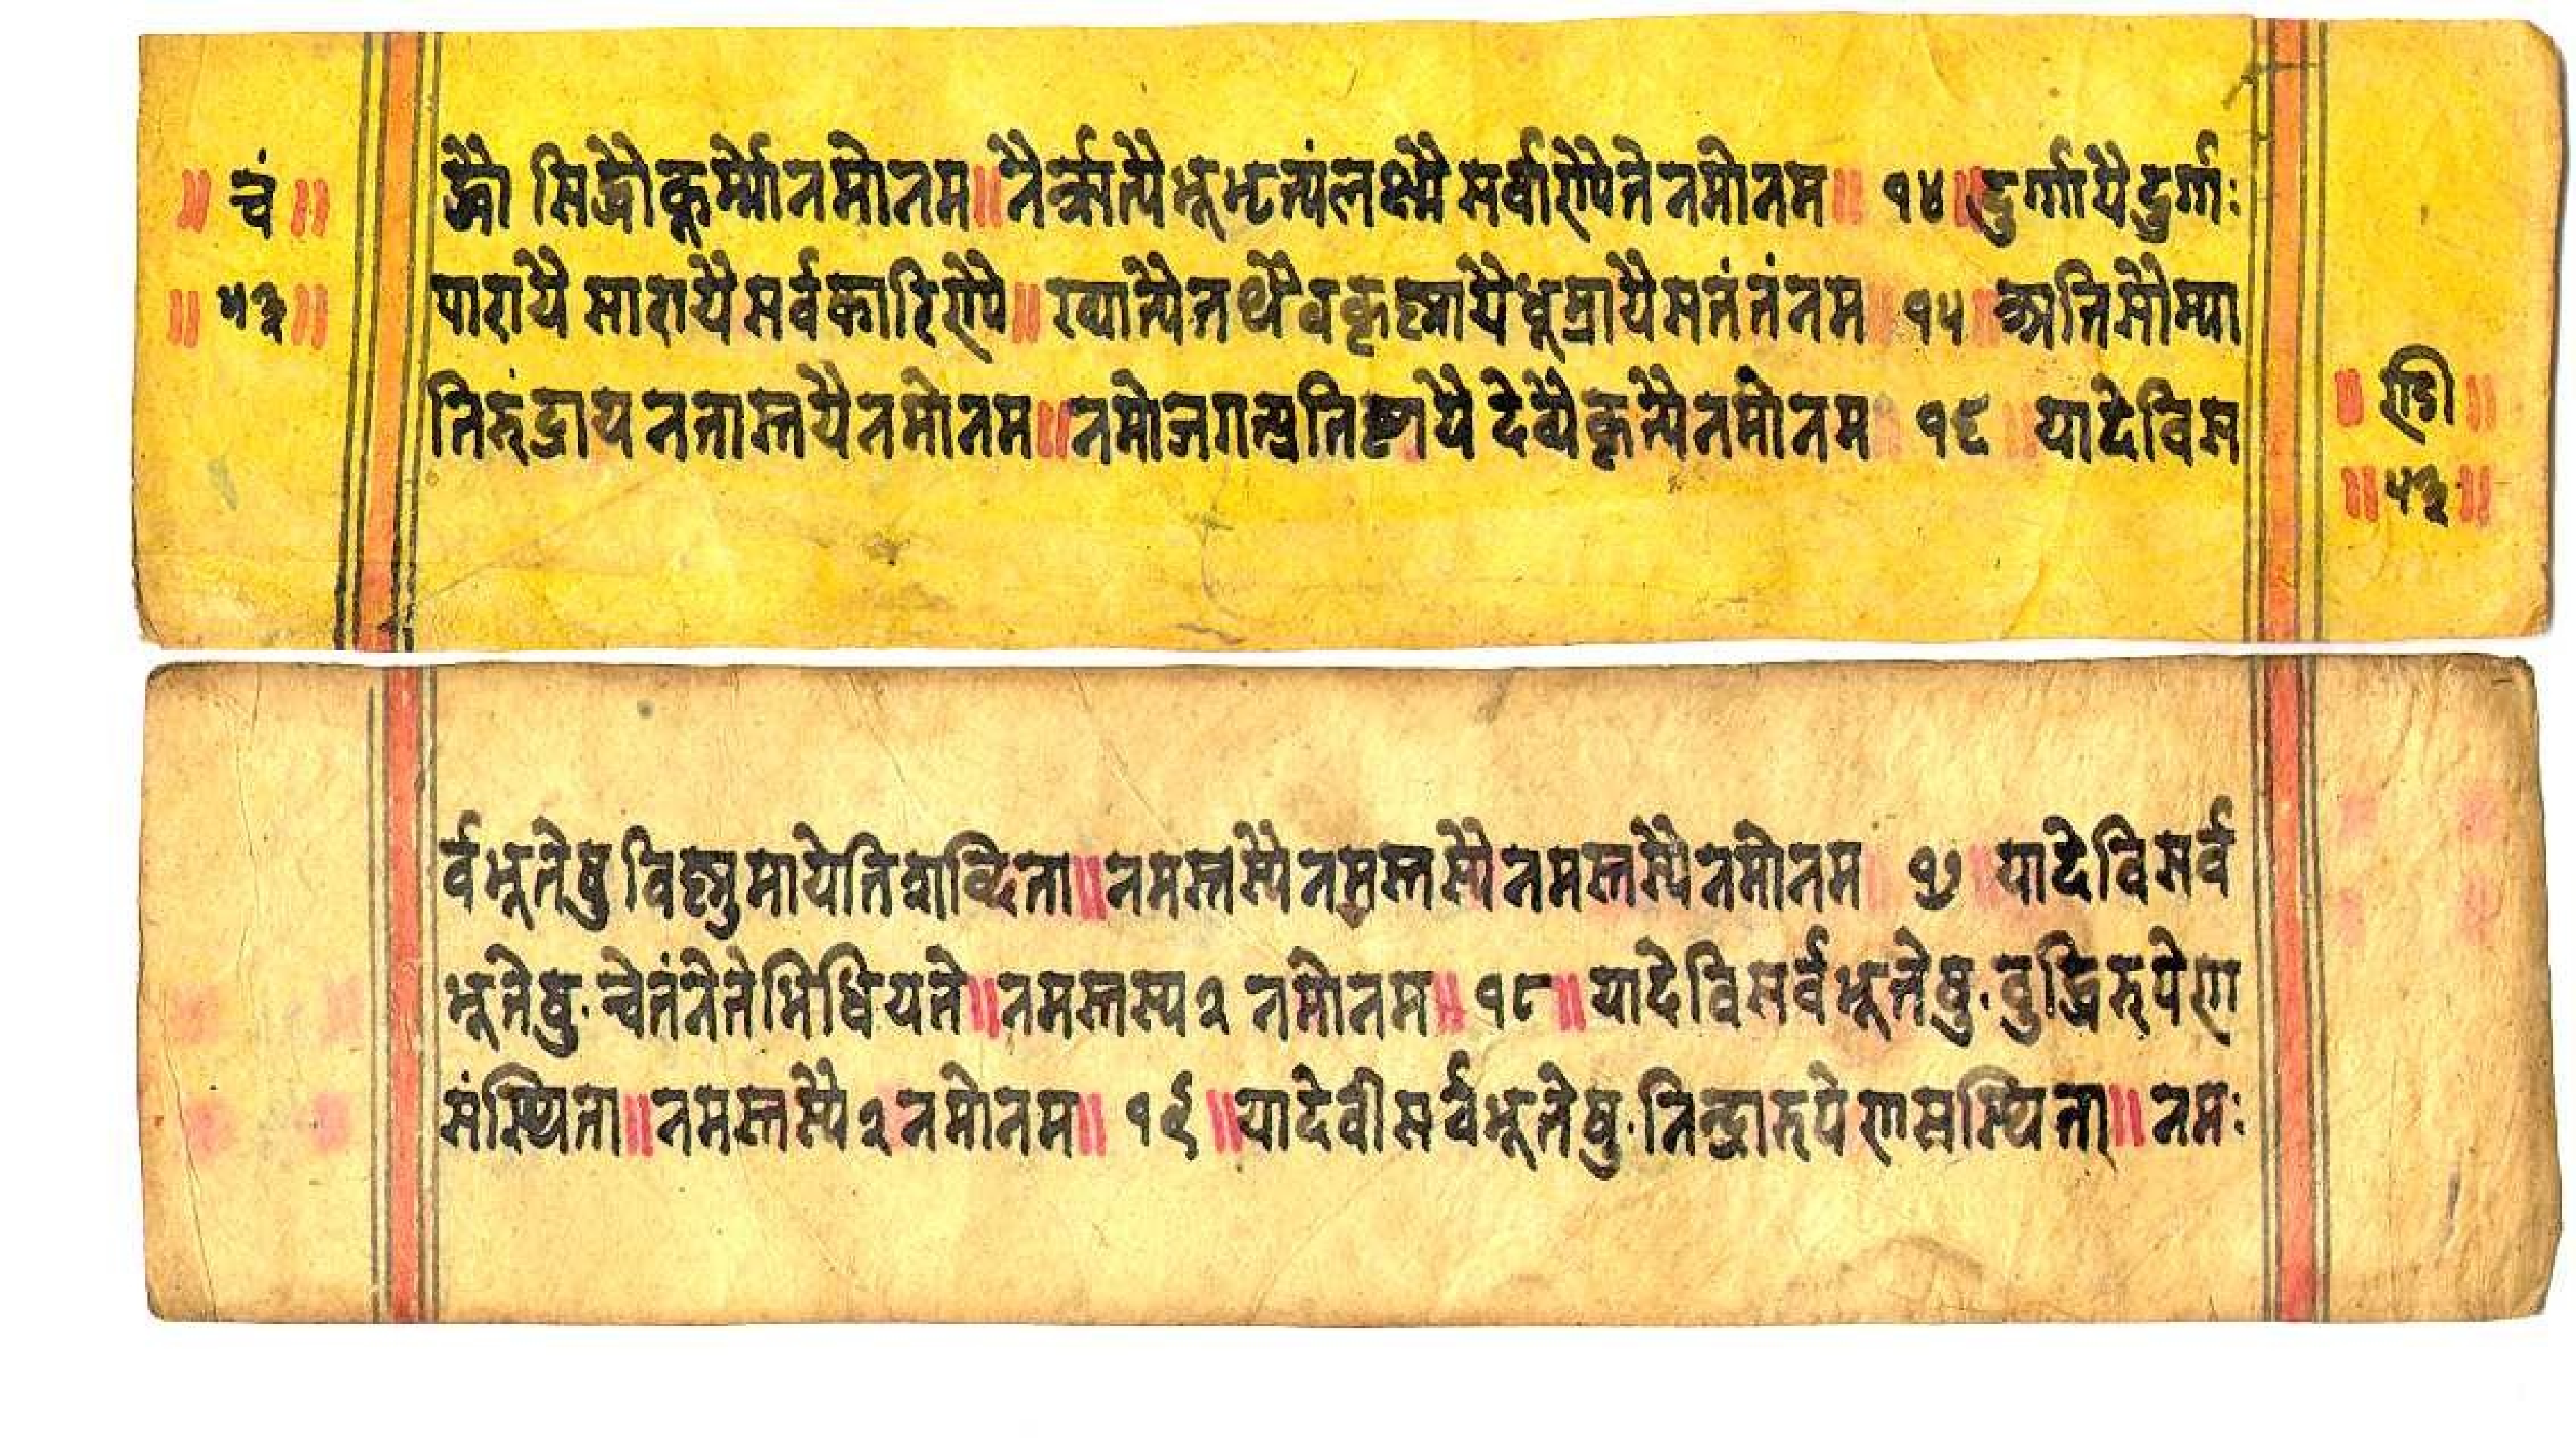 ॥ चं ॥
॥ ५३ ॥
द्धौ सिद्धौकूर्म्मोनमोनम॥नैर्ऋत्यैभूभृत्यंलक्ष्मै सर्वाणैतेनमोनम॥ १४॥दुर्गायैदुर्गः
पारायै सारायैसर्वकारिणै॥ख्यात्यैतथैवकृष्णायैधूम्रायैसतंतंनम १५ अतिसौम्या
तिरुंद्राय नतास्तयैनमोनम॥नमोजगत्प्रतिष्ठायै देव्यैकृत्यैनमोनम १६ यादेविस
॥ ण्डी ॥
॥ ५३ ॥
र्वभूतेषु विष्णुमायेतिशब्दिता॥नमस्तस्यैनमस्तस्यैनमस्तस्यैनमोनम १७ यादेविसर्व
भूतेषु·चेतंनेतेभिधियते॥नमस्तस्य२ नमोनम॥ १८॥यादेविसर्वभूतेषु·बुद्धिरुपेण
संस्थिता॥नमस्तस्यै२नमोनम॥ १९॥यादेवीसर्वभूतेषु·निन्द्रारुपेणसस्थिता॥नमः